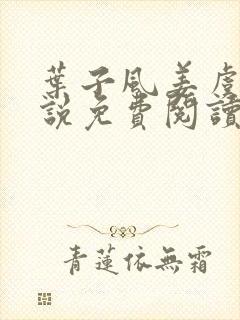 葉子風姜虞
說免費閱讀
青蓮依無霜